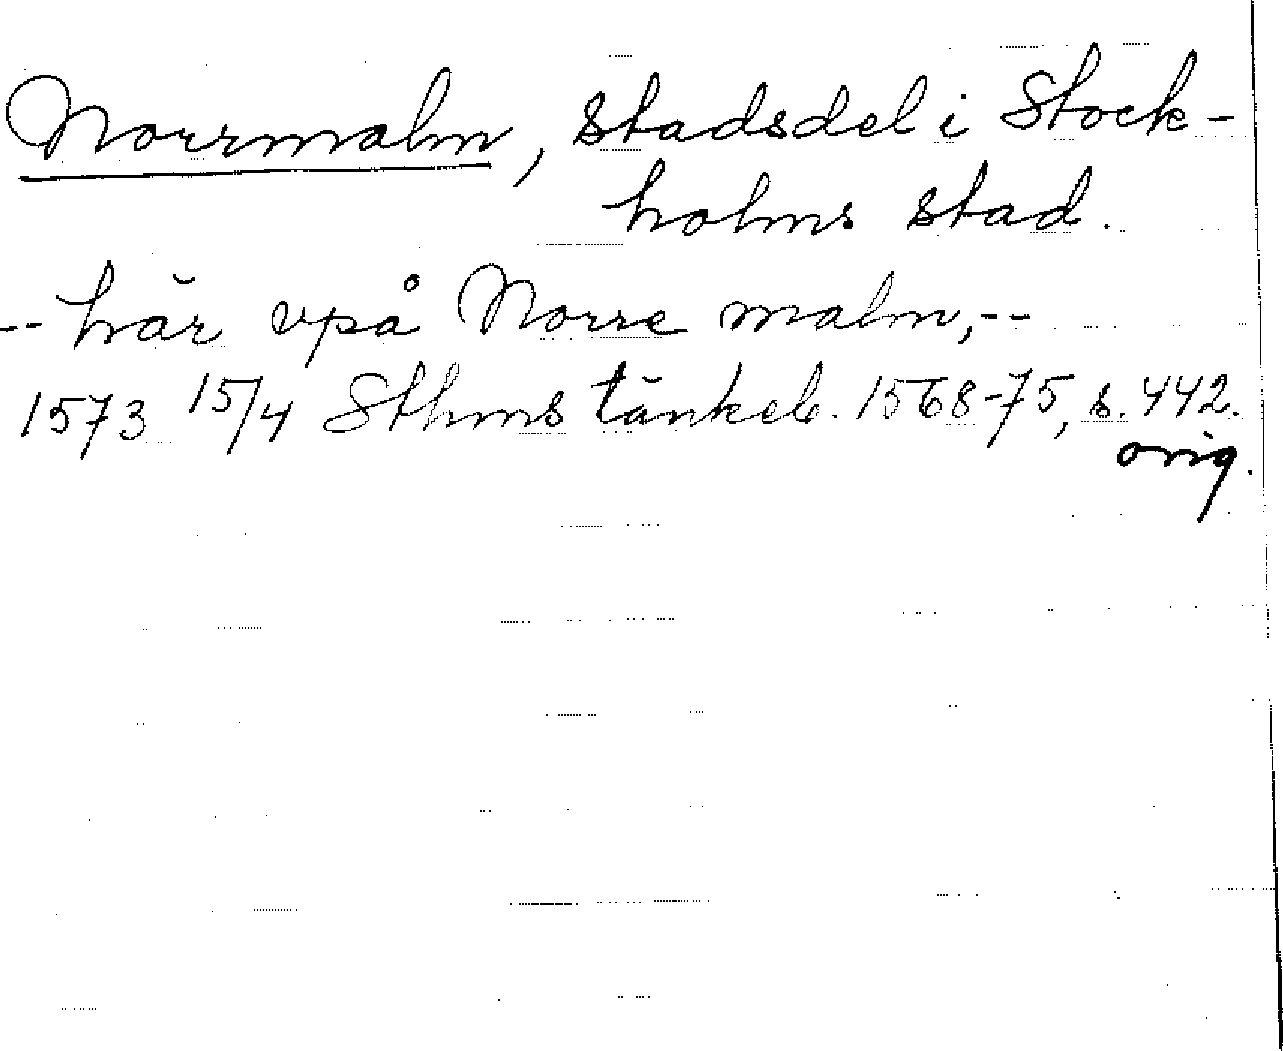 Norrmalm, stadsdel i Stock-
holms stad.
-- här vpå Norre malm,--
1573 15/4 Sthms tänkeb. 1568-75, s. 442.
orig.